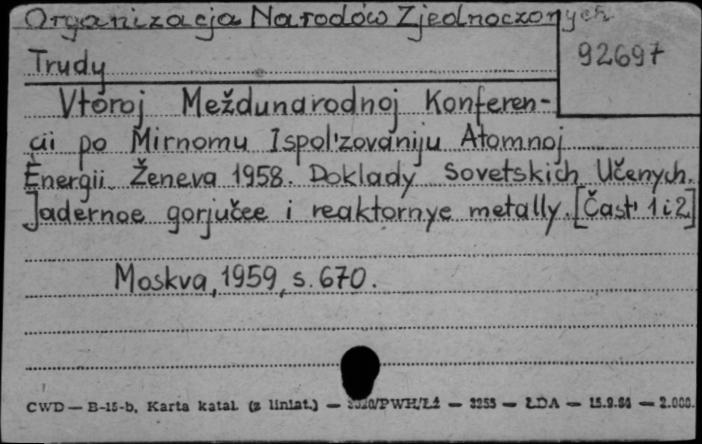 Organizacja Narodów Zjednoczonych
92697
Trudy
Vtoroj Meždunarodnoj Konferen-
cii po Mirnomu Ispol'zovaniju Atomnoj
Ènergii. Ženeva 1958. Doklady Sovetskich Učenych.
Jadernoe gorjučee i reaktornye metally. [Čast' 1 i 2]
Moskva, 1959, s. 670.
CWD — B-15-b, Karta katal. (z liniat.) — /PWH/Łż — 3255 — ŁDA — 15.9.64 — 2.000.